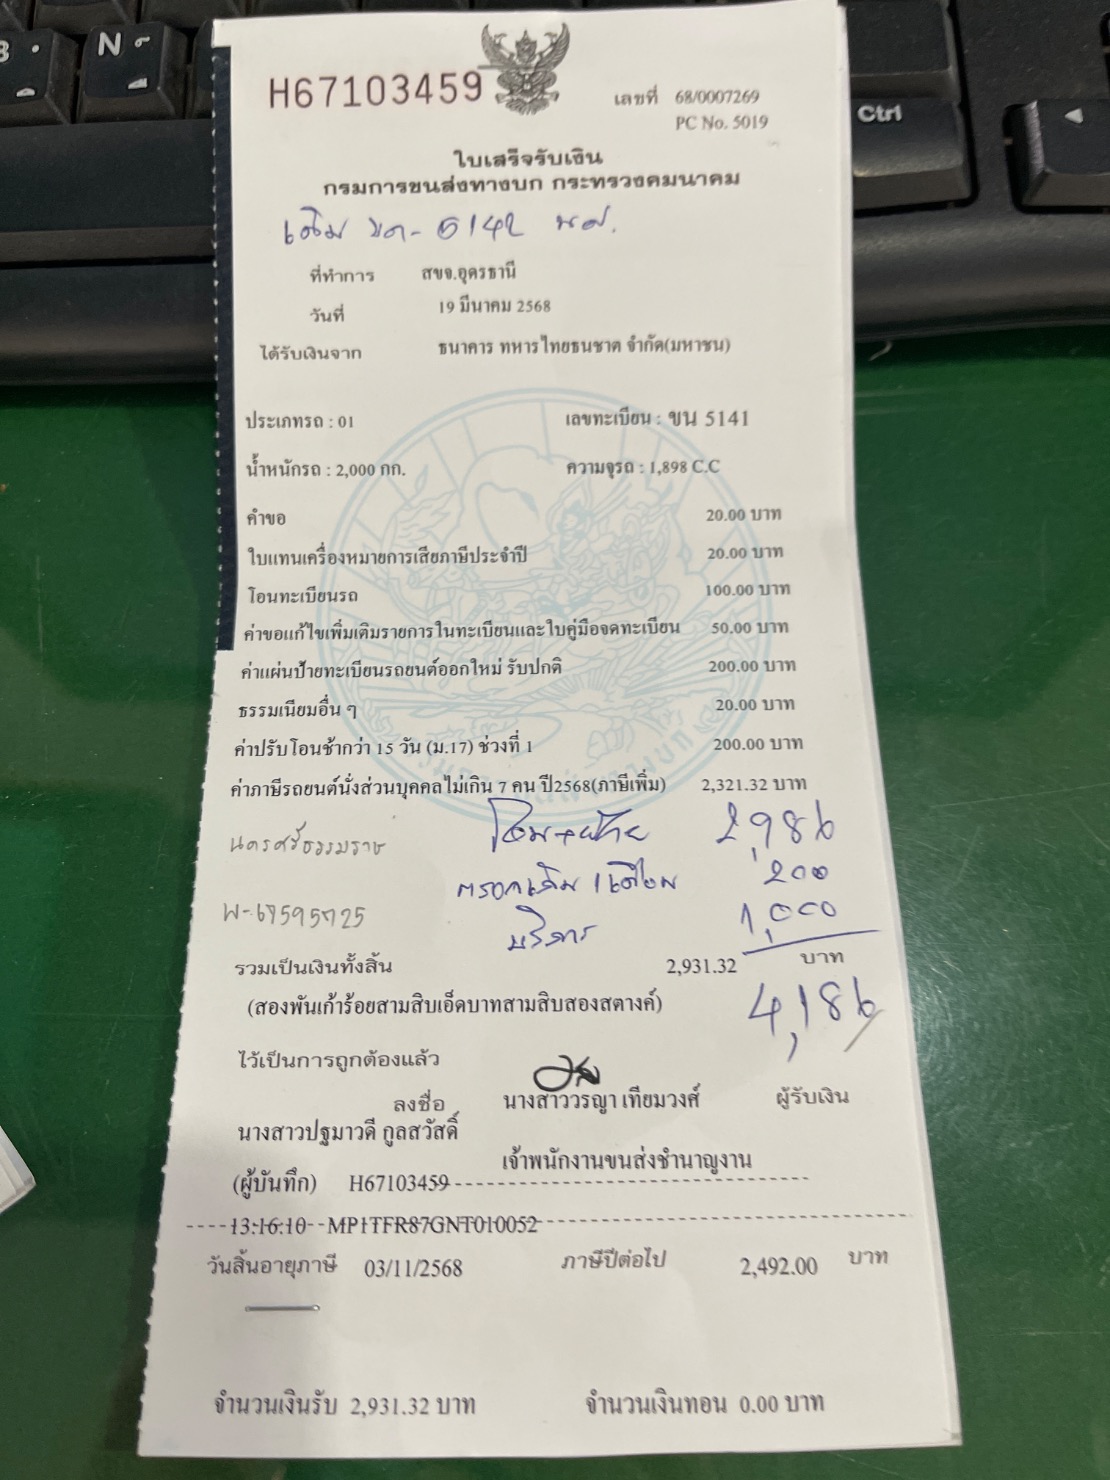 H67103459
เลขที่ 68/0007269
PC No. 5019
ใบเสร็จรับเงิน
กรมการขนส่งทางบก กระทรวงคมนาคม
เดิม ขค- 5142 นศ.
ที่ทำการ สขจ.อุดรธานี
วันที่ 19 มีนาคม 2568
ได้รับเงินจาก ธนาคาร ทหารไทยธนชาต จำกัด(มหาชน)
ประเภทรถ : 01 เลขทะเบียน : ขน 5141
น้ำหนักรถ : 2,000 กก. ความจุรถ : 1,898 C.C
คำขอ 20.00 บาท
ใบแทนเครื่องหมายการเสียภาษีประจำปี 20.00 บาท
โอนทะเบียนรถ 100.00 บาท
ค่าขอแก้ไขเพิ่มเติมรายการในทะเบียนและใบคู่มือจดทะเบียน 50.00 บาท
ค่าแผ่นป้ายทะเบียนรถยนต์ออกใหม่ รับปกติ 200.00 บาท
ธรรมเนียมอื่น ๆ 20.00 บาท
ค่าปรับโอนช้ากว่า 15 วัน (ม.17) ช่วงที่ 1 200.00 บาท
ค่าภาษีรถยนต์นั่งส่วนบุคคลไม่เกิน 7 คน ปี2568(ภาษีเพิ่ม) 2,321.32 บาท
นครศรีธรรมราช โอน+ย้าย 2,986
200
พ-69595725 บริการ 1,000
รวมเป็นเงินทั้งสิ้น 2,931.32 บาท
(สองพันเก้าร้อยสามสิบเอ็ดบาทสามสิบสองสตางค์) 4,186
ไว้เป็นการถูกต้องแล้ว
ลงชื่อ นางสาววรญา เทียมวงศ์ ผู้รับเงิน
นางสาวปฐมาวดี กูลสวัสดิ์
เจ้าพนักงานขนส่งชำนาญงาน
(ผู้บันทึก) H67103459
13:16:10 MP1TFR87GNT010052
วันสิ้นอายุภาษี 03/11/2568 ภาษีปีต่อไป 2,492.00 บาท
จำนวนเงินรับ 2,931.32 บาท จำนวนเงินทอน 0.00 บาท
Ctrl
N